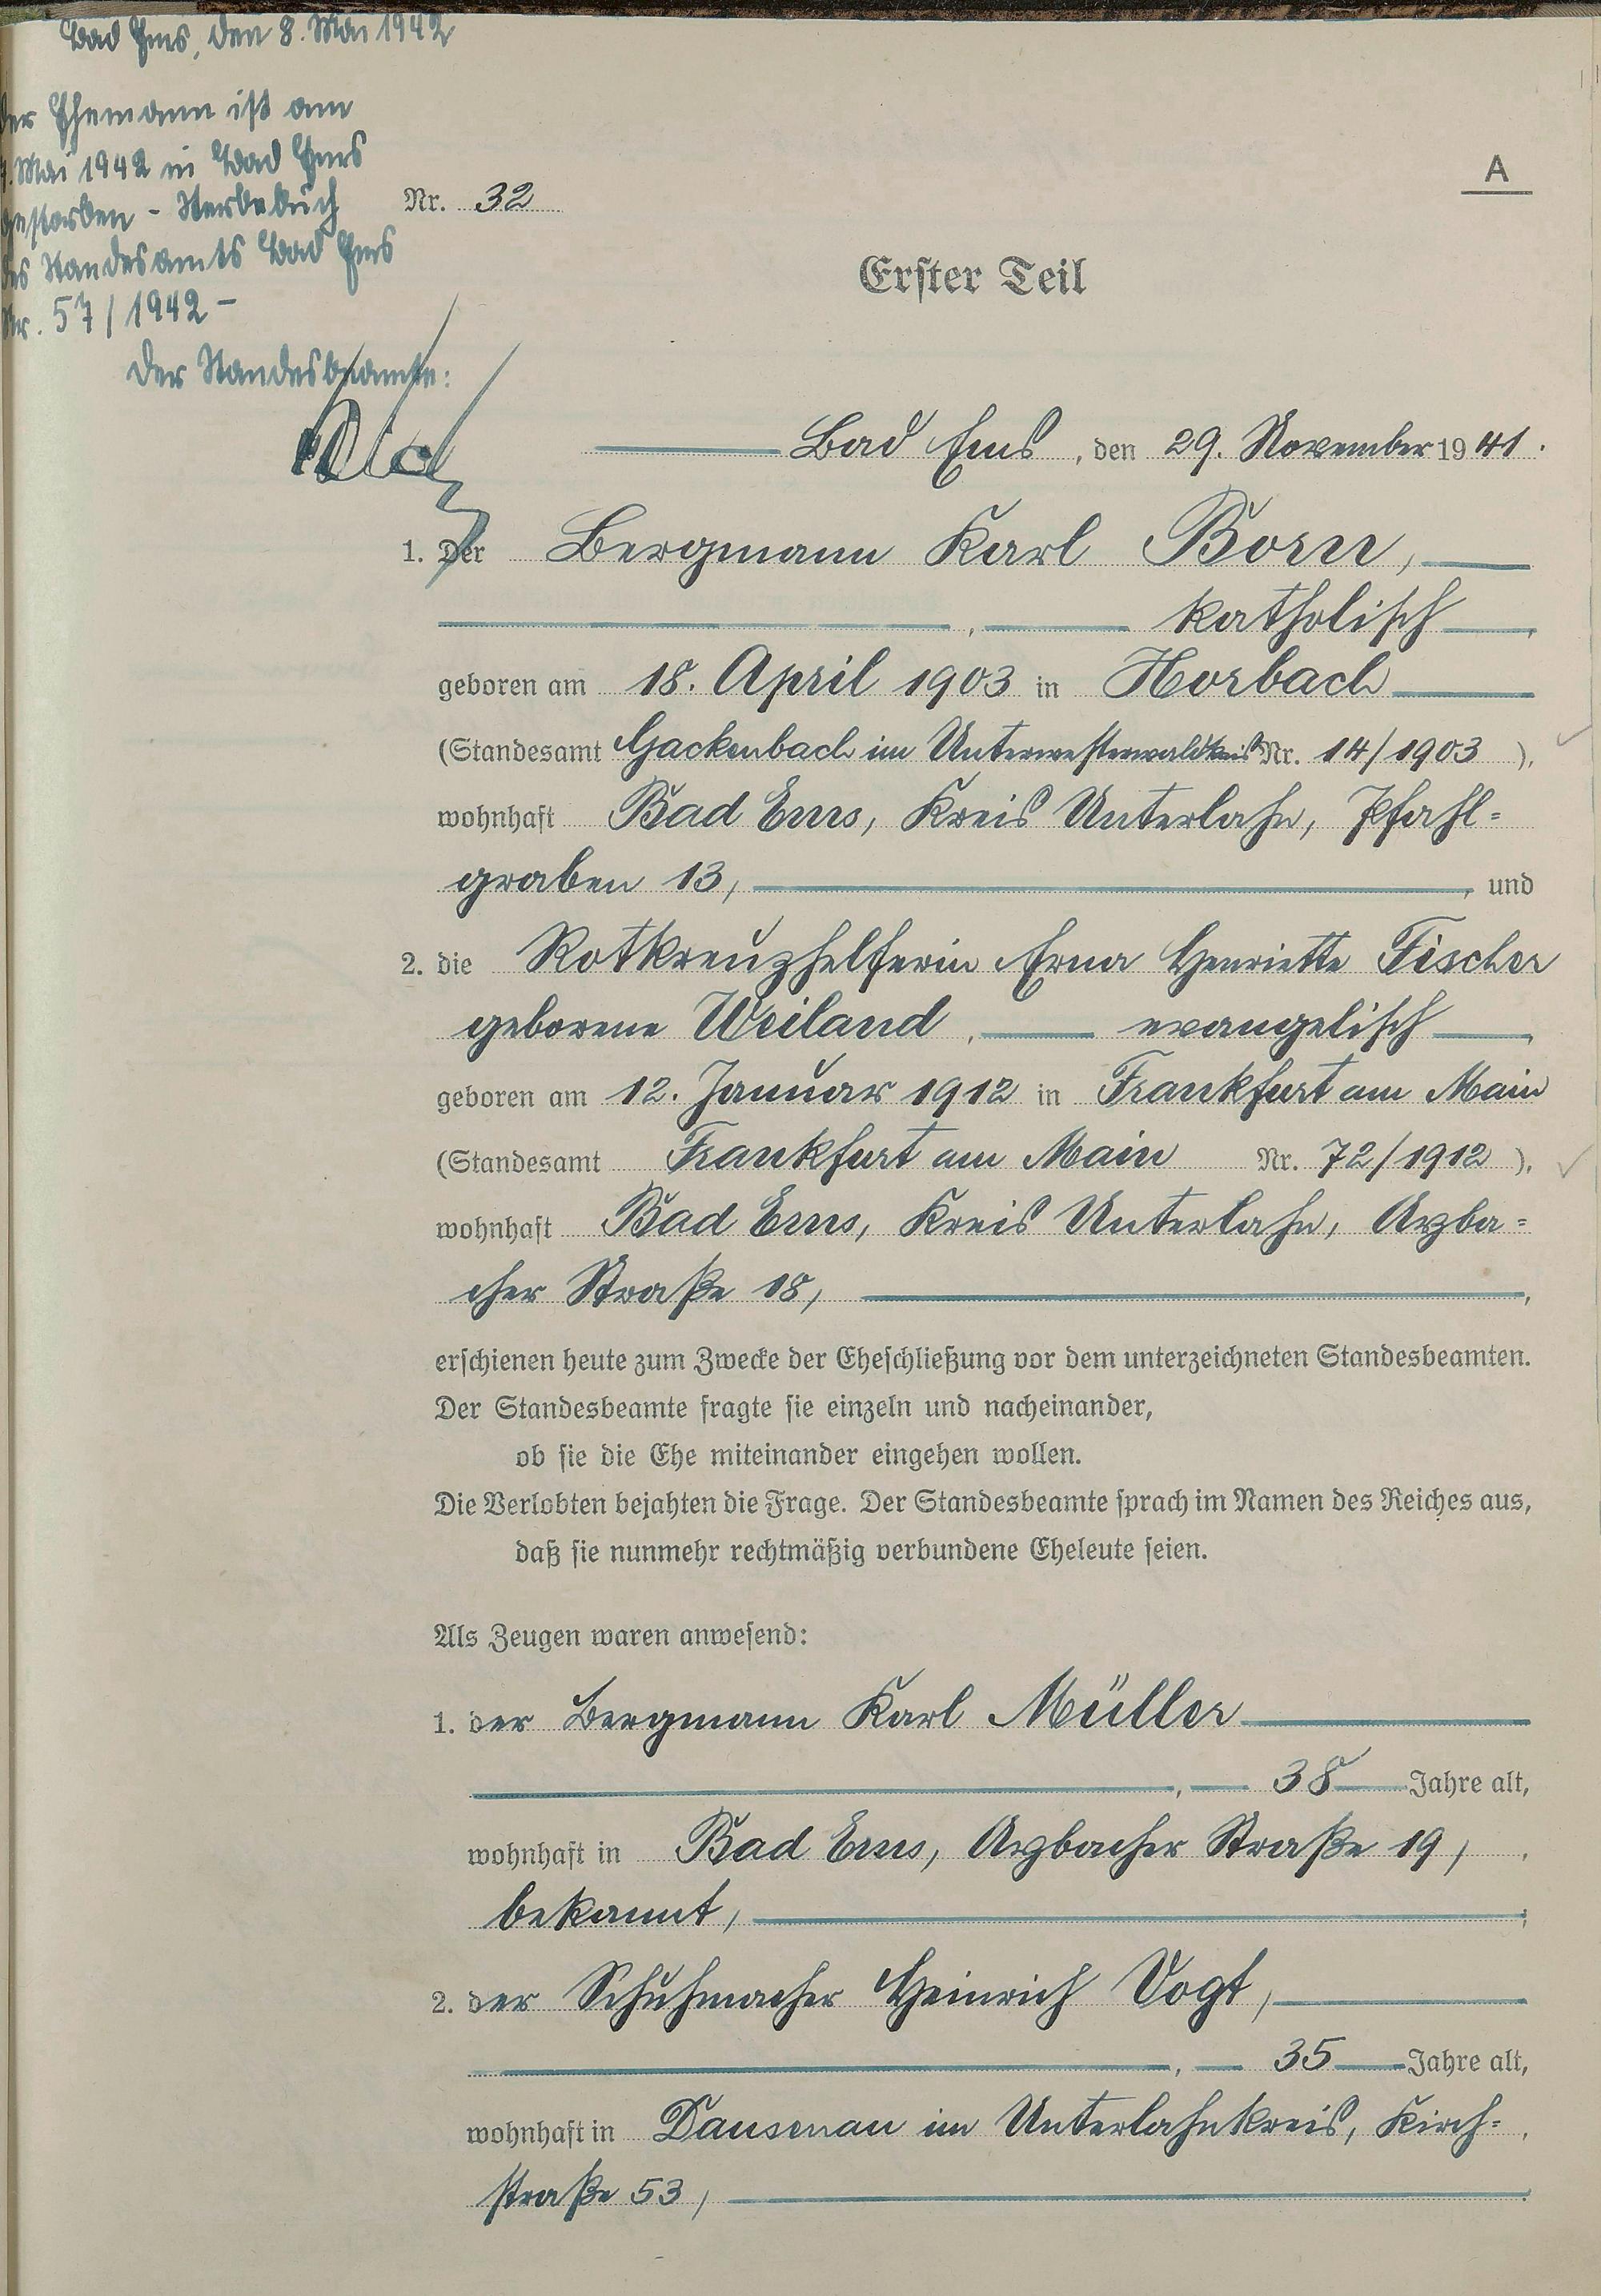 Bad Ems, den 8. Mai 1942
der Ehemann ist am
Mai 1942 in Bad Ems
gestorben - Sterbebuch
des Standesamts Bad Ems
Nr. 57/1942 -
der Standesbeamte:
A
Nr. 32
Erster Teil
Bad Ems, den 29. November 1941.
1. Der Bergmann Karl Born,
, katholisch,
geboren am 18. April 1903 in Horbach
(Standesamt Gackenbach im Unterwesterwaldkreis Nr. 14/1903),
wohnhaft Bad Ems, Kreis Unterlahn, Pfahl=
graben 13, , und
2. die Rotkreuzhelferin Erna Henriette Fischer
geborene Weiland, evangelisch,
geboren am 12. Januar 1912 in Frankfurt am Main
(Standesamt Frankfurt am Main Nr. 72/1912),
wohnhaft Bad Ems, Kreis Unterlahn, Arzba=
cher Straße 18, ,
erschienen heute zum Zwecke der Eheschließung vor dem unterzeichneten Standesbeamten.
Der Standesbeamte fragte sie einzeln und nacheinander,
ob sie die Ehe miteinander eingehen wollen.
Die Verlobten bejahten die Frage. Der Standesbeamte sprach im Namen des Reiches aus,
daß sie nunmehr rechtmäßig verbundene Eheleute seien.
Als Zeugen waren anwesend:
1. der Bergmann Karl Müller
, 38 Jahre alt,
wohnhaft in Bad Ems, Arzbacher Straße 19, ,
bekannt, ;
2. der Schuhmacher Heinrich Vogt,
, 35 Jahre alt,
wohnhaft in Dausenau im Unterlahnkreis, Kirch= ,
straße 53, .